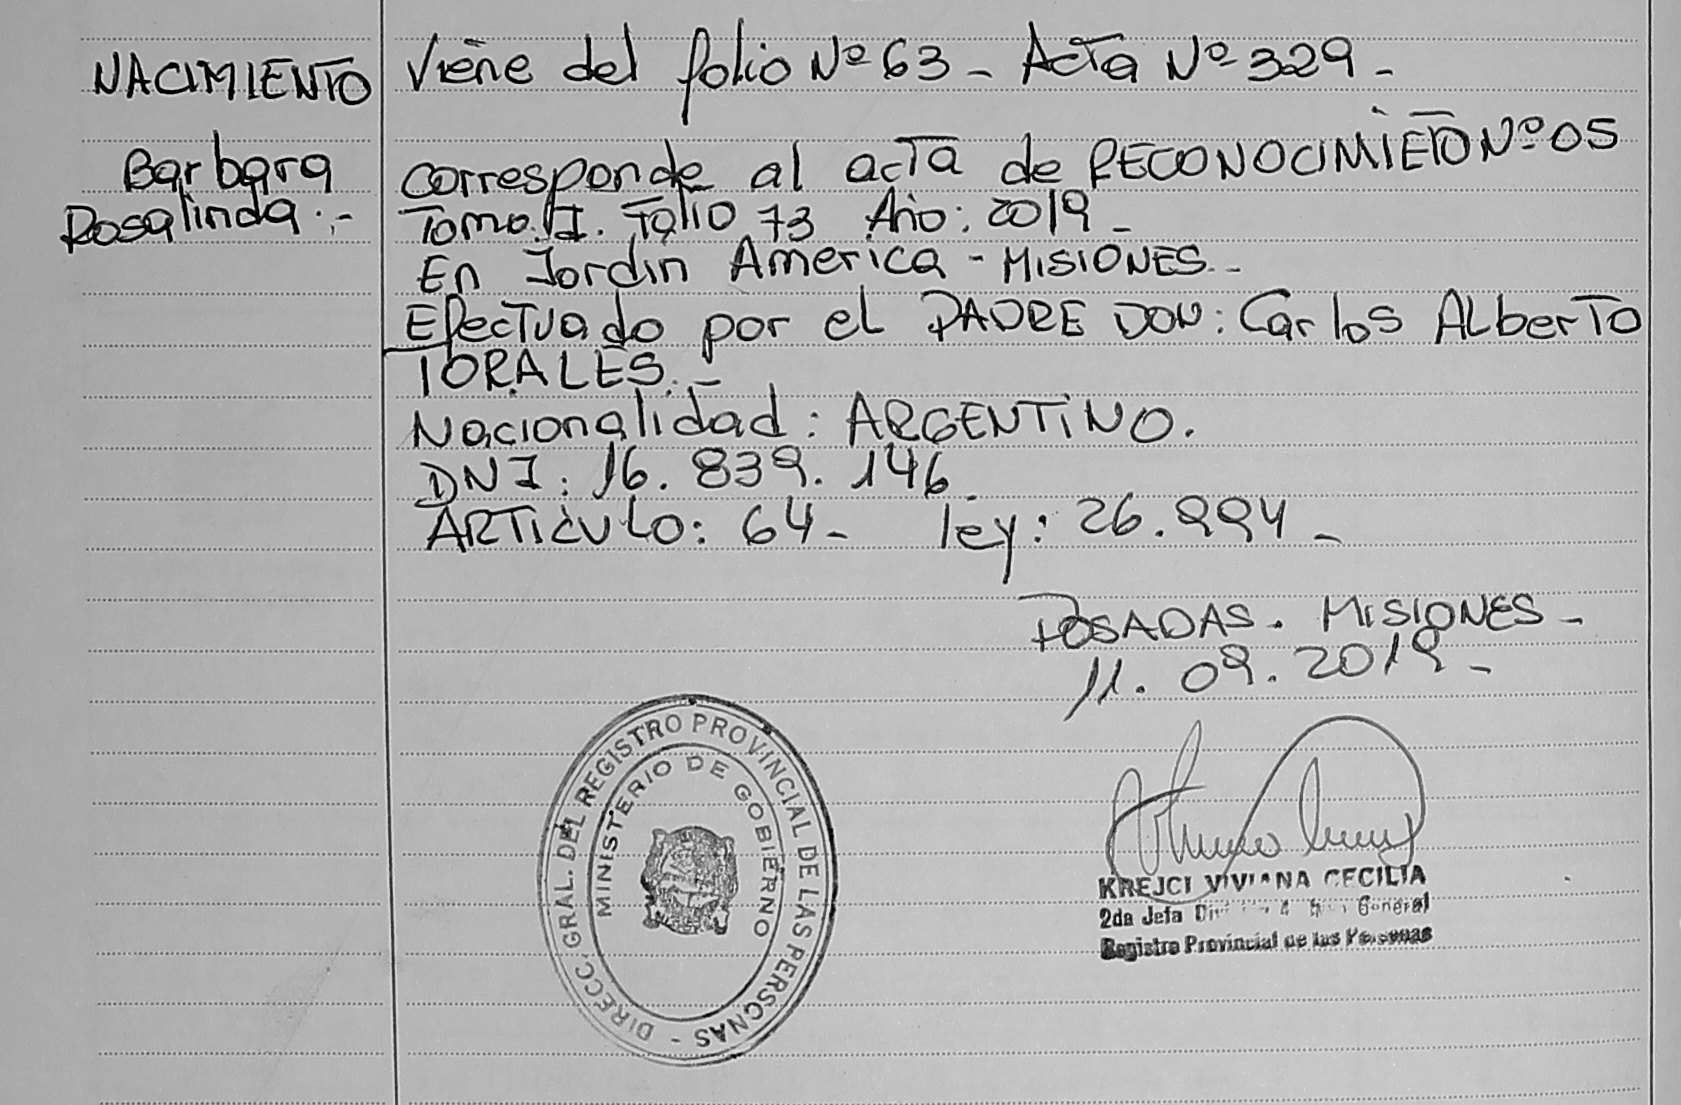 NACIMIENTO
Barbara
Rosalinda.-
Viene del folio Nº 63 - Acta Nº 329 -
corresponde al acta de RECONOCIMIETO Nº 05
Tomo. I. Folio 73 Año: 2019 -
En Jardin America - MISIONES -
Efectuado por el PADRE DON: Carlos Alberto
TORALES. -
Nacionalidad: ARGENTINO.
DNI: 16. 839. 146.
ARTiCULO: 64 - ley: 26.994 -
POSADAS. MISIONES -
11. 09. 2019 -
DIRECC. GRAL. DEL REGISTRO PROVINCIAL DE LAS PERSONAS -
MINISTERIO DE GOBIERNO
KREJCI VIVIANA CECILIA
2da Jefa General
Registro Provincial de las Personas